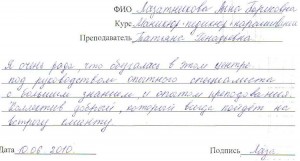 ФИО Лазатникова Анна Борисовна
Курс Маникюр-педикюр-наращивание
Преподаватель Татьяна Геннадьевна
Я очень рада, что обучалась в этом центре
под руководством опытного специалиста
с большим знанием и опытом преподавания.
Коллектив добрый, который всегда пойдёт на
встречу клиенту.
Дата 10.06.2010. Подпись Лаза